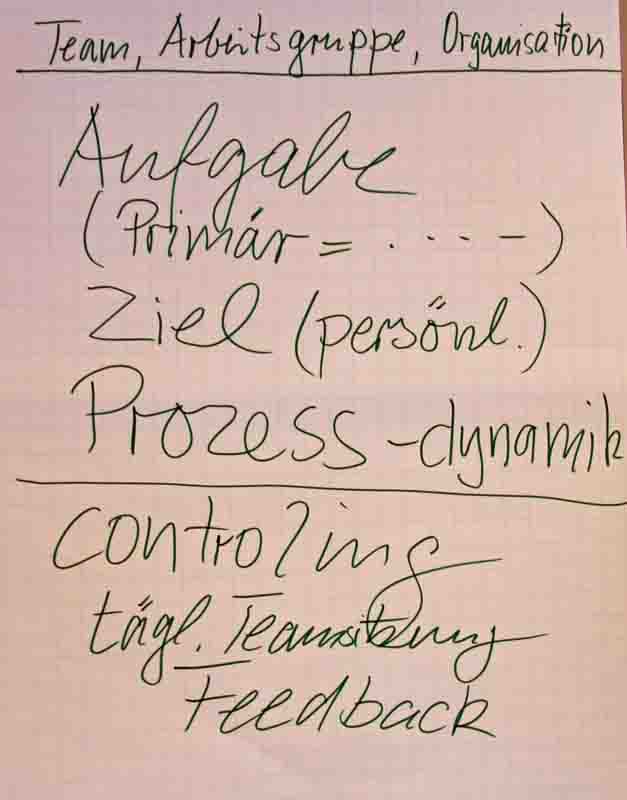 Team, Arbeitsgruppe, Organisation
Aufgabe
(Primär = . . . . -)
Ziel (persönl.)
Prozess-dynamik
Controling
tägl. Teamsitzung
Feedback